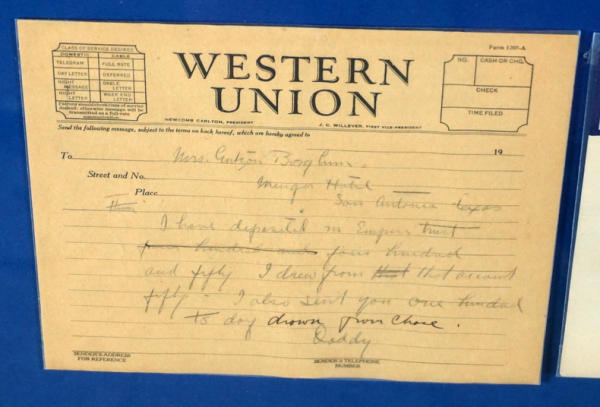 Form 1207-A
CLASS OF SERVICE DESIRED
DOMESTIC CABLE
TELEGRAM FULL RATE
DAY LETTER DEFERRED
NIGHT MESSAGE CABLE LETTER
NIGHT LETTER WEEK END LETTER
Patrons should check class of service desired; otherwise message will be transmitted as a full-rate communication.
WESTERN
UNION
NEWCOMB CARLTON, PRESIDENT J. C. WILLEVER, FIRST VICE-PRESIDENT
NO. CASH OR CHG.
CHECK
TIME FILED
Send the following message, subject to the terms on back hereof, which are hereby agreed to
To Mrs. Gutzon Borglum 19
Street and No. Menger Hotel
Place San Antonio Texas
I have deposited in Empire trust
four hundred and four hundred
and fifty I drew from that that account
fifty - I also sent you one hundred
to day drawn from Chase.
Daddy
SENDER'S ADDRESS FOR REFERENCE
SENDER'S TELEPHONE NUMBER